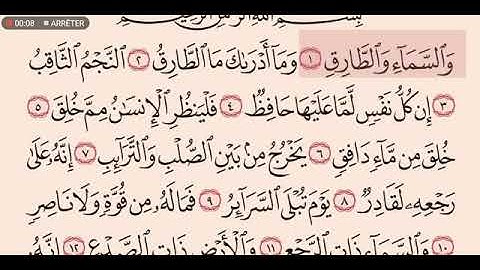 00:08 ARRÊTER
بِسْمِ اللَّهِ الرَّحْمَٰنِ الرَّحِيمِ
وَالسَّمَآءِ وَالطَّارِقِ ١ وَمَآ أَدْرَىٰكَ مَا الطَّارِقُ ٢ النَّجْمُ الثَّاقِبُ
٣ إِن كُلُّ نَفْسٍ لَّمَّا عَلَيْهَا حَافِظٌ ٤ فَلْيَنظُرِ الْإِنسَٰنُ مِمَّ خُلِقَ ٥
خُلِقَ مِن مَّآءٍ دَافِقٍ ٦ يَخْرُجُ مِنۢ بَيْنِ الصُّلْبِ وَالتَّرَآئِبِ ٧ إِنَّهُۥ عَلَىٰ
رَجْعِهِۦ لَقَادِرٌ ٨ يَوْمَ تُبْلَى السَّرَآئِرُ ٩ فَمَا لَهُۥ مِن قُوَّةٍ وَلَا نَاصِرٍ
١٠ وَالسَّمَآءِ ذَاتِ الرَّجْعِ ١١ وَالْأَرْضِ ذَاتِ الصَّدْعِ ١٢ إِنَّهُۥ